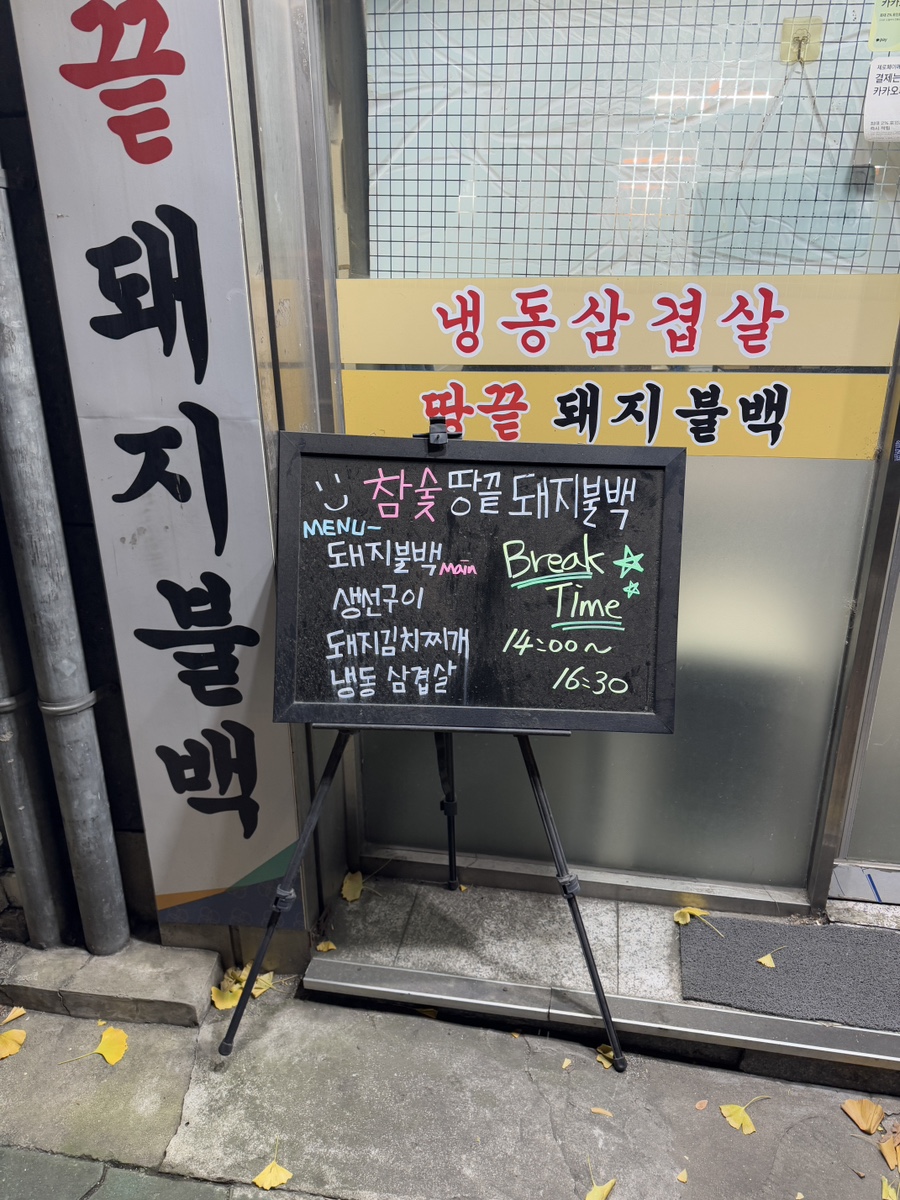 끝돼지불백
냉동삼겹살
땅끝 돼지불백
참숯 땅끝 돼지불백
MENU~
돼지불백 Main
생선구이
돼지김치찌개
냉동 삼겹살
Break
Time
14:00~
16:30
결제는